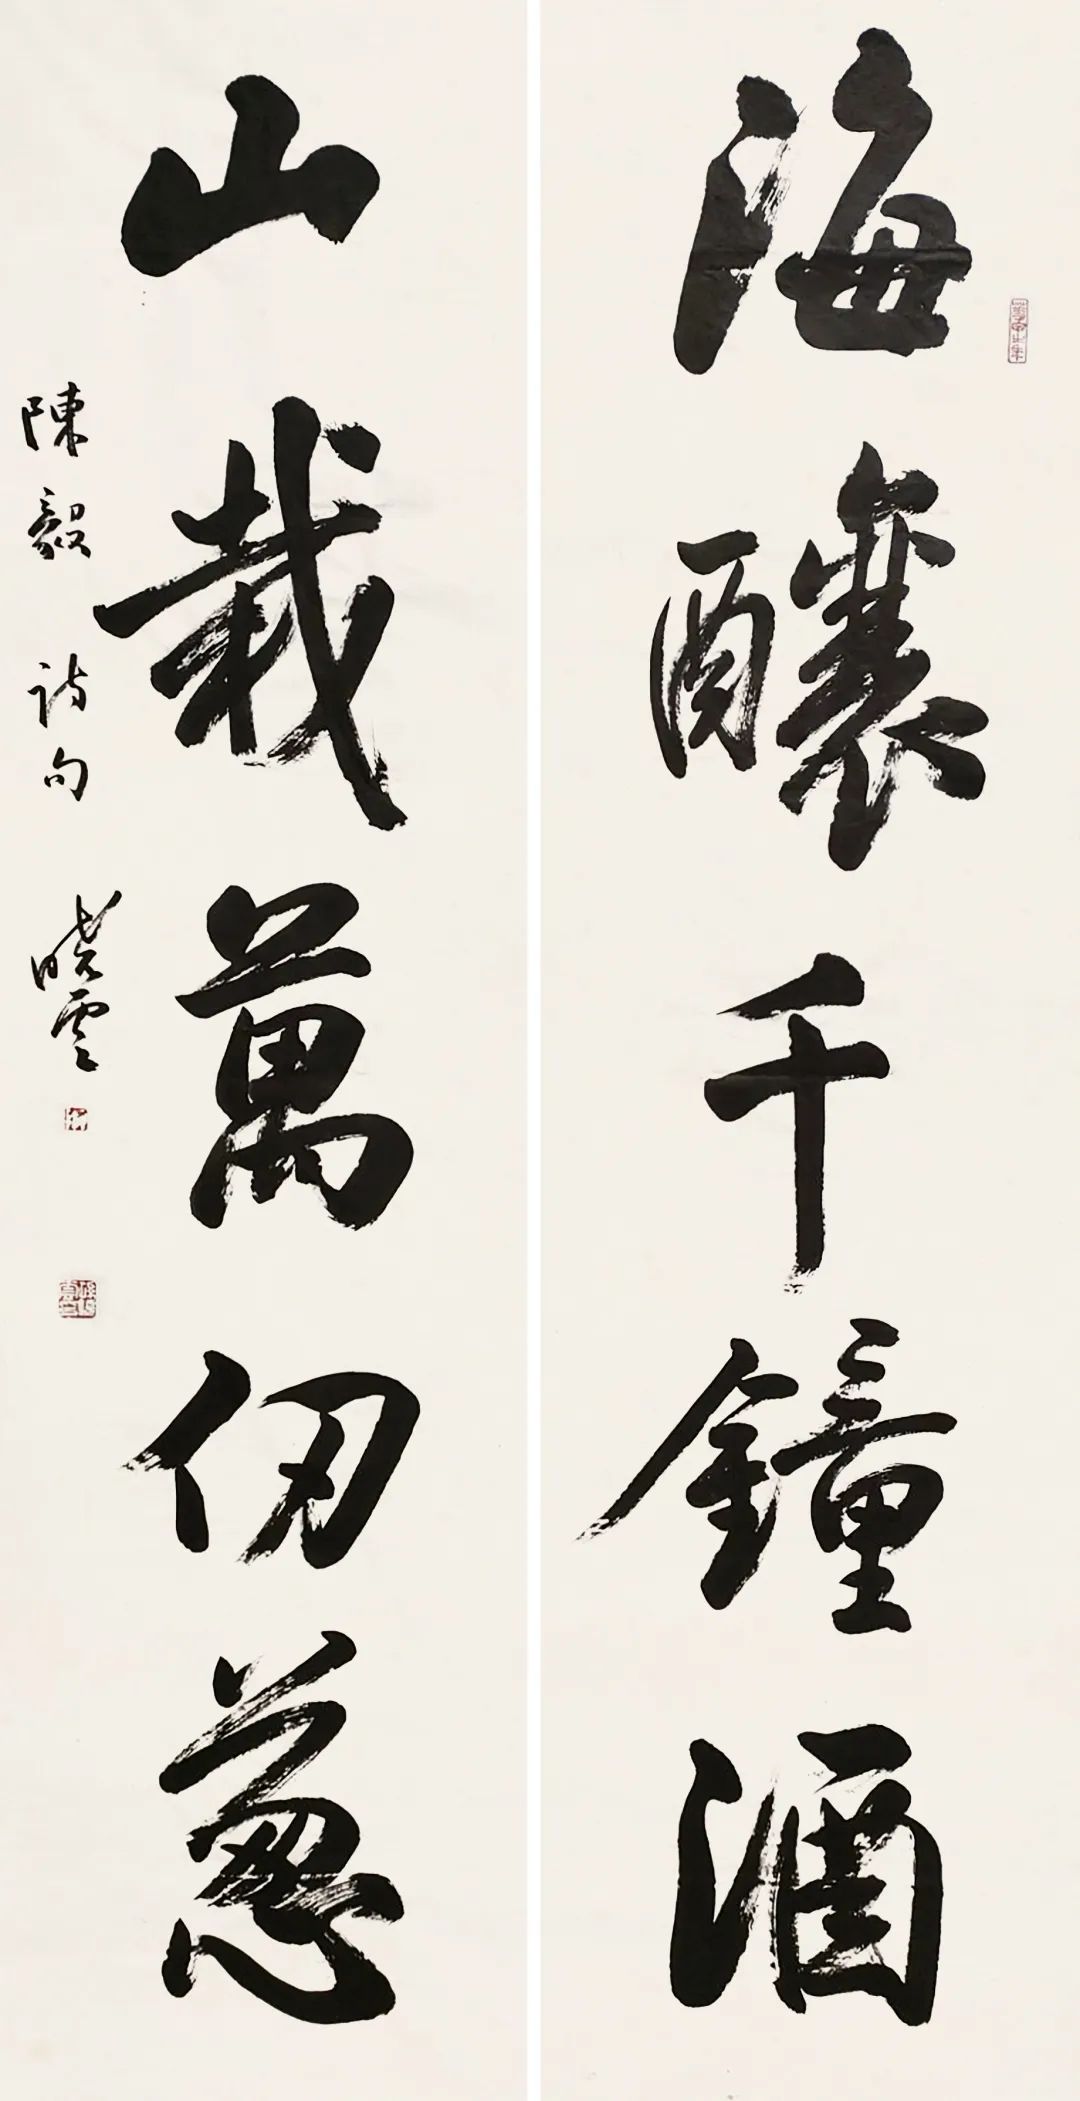 海釀千鐘酒
山栽萬仞葱
陳毅詩句
晓雲